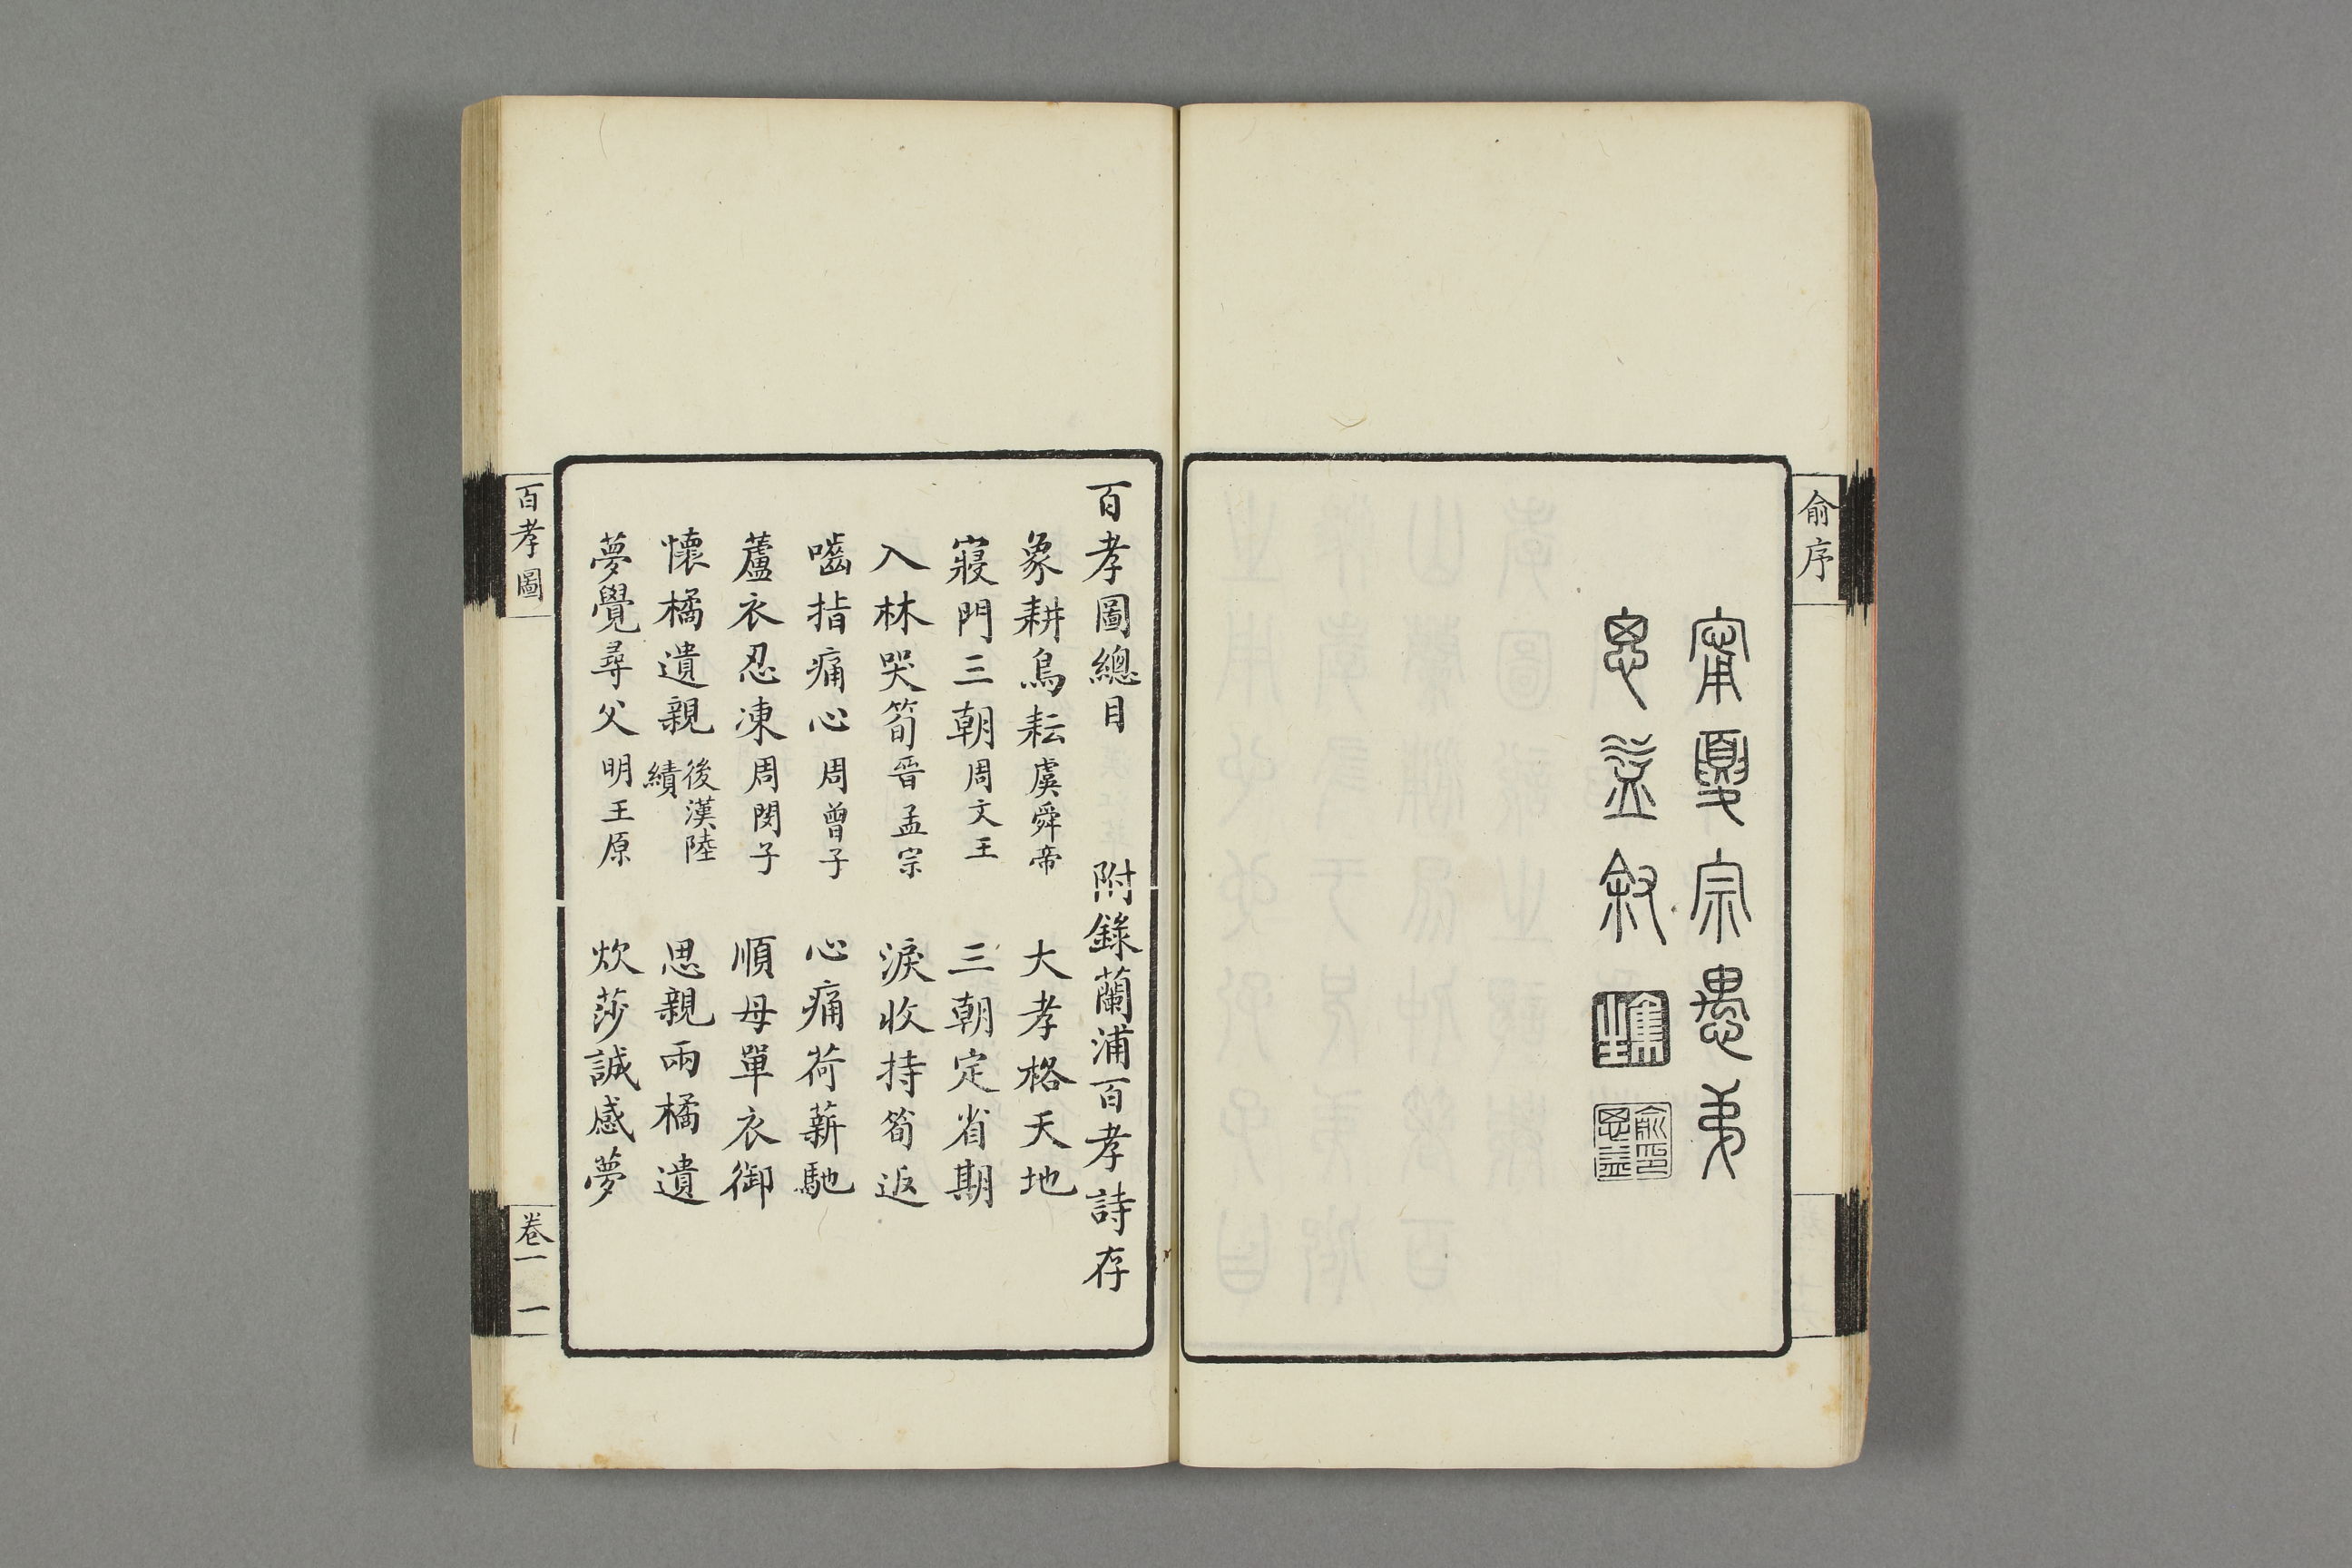 俞序
甯夏宗愚弟
思益敘
俞印思益
百孝圖總目 附錄蘭浦百孝詩存
象耕鳥耘 虞舜帝 大孝格天地
寢門三朝 周文王 三朝定省期
入林哭筍 晉孟宗 淚收持筍返
嚙指痛心 周曾子 心痛荷薪馳
蘆衣忍凍 周閔子 順母單衣御
懷橘遺親 後漢陸績 思親兩橘遺
夢覺尋父 明王原 炊莎誠感夢
百孝圖 卷一 一